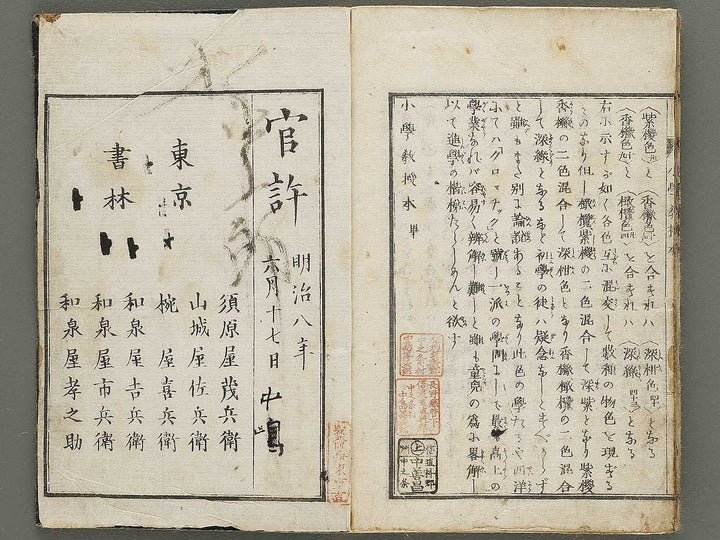 〈紫樱色〉と〈香橙色〉を合すれハ〈深柑色〉となる
〈香橙色〉と〈橄欖色〉を合すれハ〈深緑〉となる
右に示すが如く各色互に混交して数種の物色を現する
ものなり但し橄欖紫樱の二色混合して深紫となり紫樱
香橙の二色混合して深柑色となり香橙橄欖の二色混合
して深緑となるなど初學の徒ハ疑念なきとすべからず
と雖もまた別に論説あることなり此色の學たるや西洋
にてハクロマチックと號し一派の學問にして最も高上の
學業なれバ容易く辨解し難しと雖も童兒の為に畧解し
以て進學の楷梯たらしめんと欲す
小學教授本 畢
官許
明治八年
六月十七日
中嶋
東京
書林
須原屋茂兵衛
山城屋佐兵衛
椀屋喜兵衛
和泉屋吉兵衛
和泉屋市兵衛
和泉屋孝之助